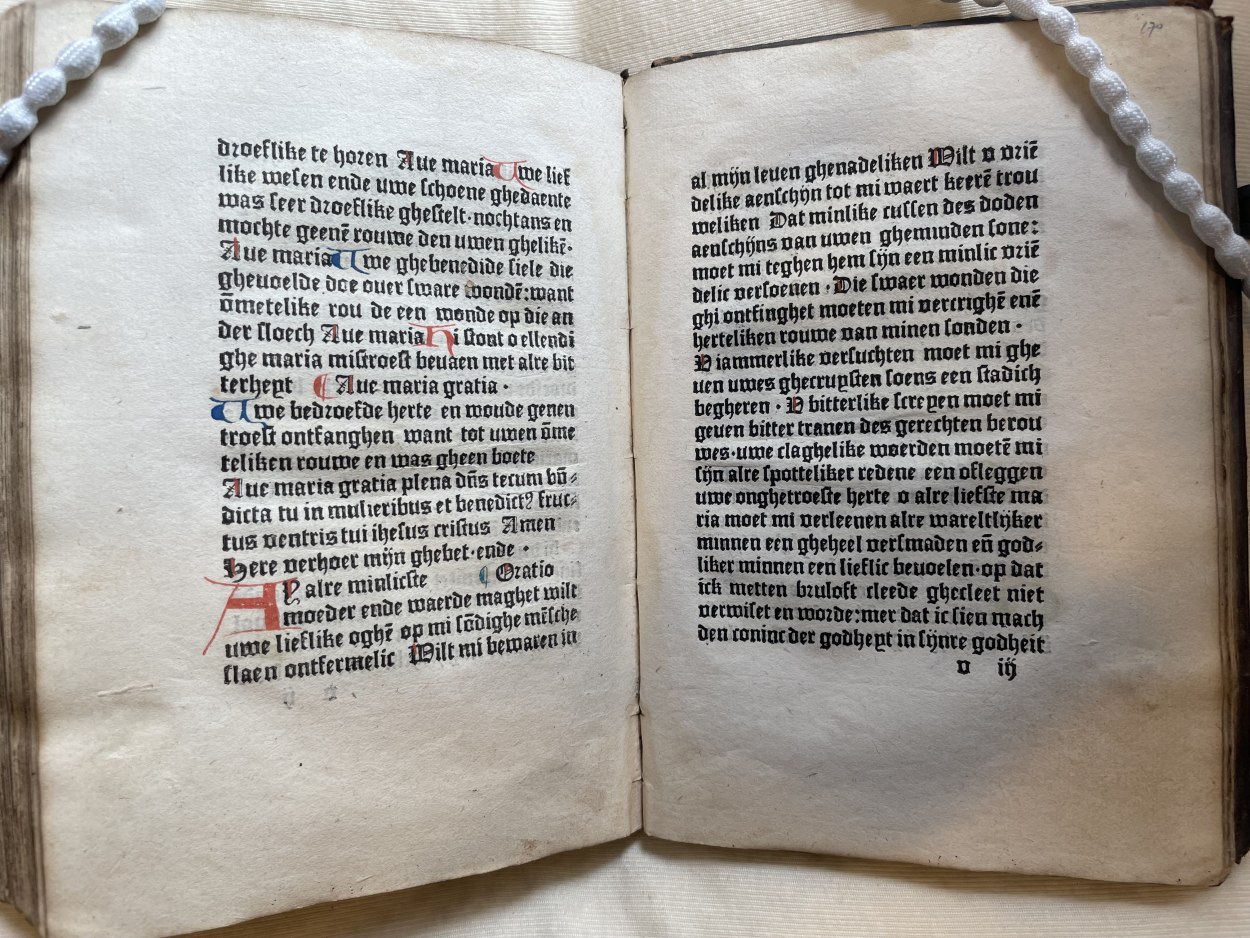 droeflike te horen Aue maria Uwe lief
like wesen ende uwe schoene ghedaente
was seer droeflike ghestelt·nochtans en
mochte geenē rouwe den uwen ghelikē·
Aue maria Uwe ghebenedide siele die
gheuoelde doe ouer sware wondē:want
ōmetelike rou de een wonde op die an
der sloech Aue maria Hi stont o ellendi
ghe maria mistroest beuaen met alre bit
terheyt Aue maria gratia·
Uwe bedroefde herte en woude genen
troest ontfanghen want tot uwen ōme
teliken rouwe en was gheen boete
Aue maria gratia plena dn̄s tecum bn̄⸗
dicta tu in mulieribus et benedictꝰ fruc⸗
tus ventris tui ihesus cristus Amen
Here verhoer mijn ghebet·ende·
AY alre minlicste Oratio
moeder ende waerde maghet wilt
uwe lieflike oghē op mi sōdighe mēsche
slaen ontfermelic Wilt mi bewaren in
170
al mijn leuen ghenadeliken Wilt v vriē
delike aenschijn tot mi waert keerē trou
weliken Dat minlike cussen des doden
aenschijns van uwen gheminden sone:
moet mi teghen hem sijn een minlic vriē
delic versoenen·Die swaer wonden die
ghi ontfinghet moeten mi vercrighē enē
herteliken rouwe van minen sonden·
V iammerlike versuchten moet mi ghe
uen uwes ghecruysten soens een stadich
begheren·V bitterlike screyen moet mi
geuen bitter tranen des gerechten berou
wes·uwe claghelike woerden moetē mi
sijn alre spotteliker redene een ofleggen
uwe onghetroeste herte o alre liefste ma
ria moet mi verleenen alre wareltlijker
minnen een gheheel versmaden en̄ god⸗
liker minnen een lieflic beuoelen·op dat
ick metten bruloft cleede ghecleet niet
verwiset en worde:mer dat ic sien mach
den coninc der godheyt in sijnre godheit
v iij